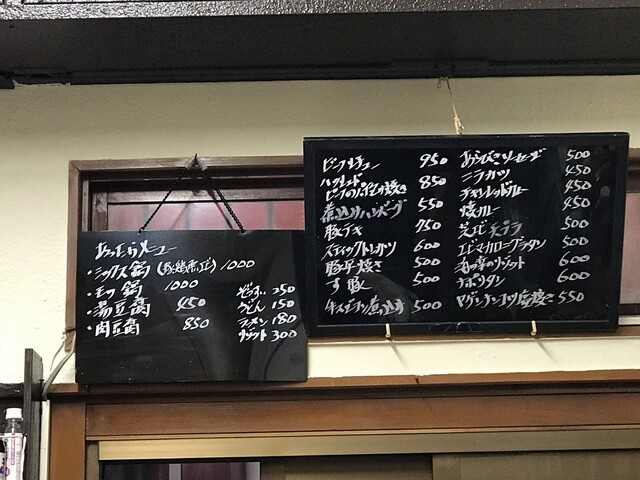 あったかメニュー
・ミックス鍋(豚、鶏、魚、エビ)1000
・モツ鍋 1000
・湯豆腐 450
・肉豆腐 850
ぞうすい 250
うどん 150
ラーメン 180
リゾット 300
ビーフシチュー 950
850
煮込みハンバーグ 550
豚テキ 750
スティックトンカツ 600
豚平焼き 500
す豚 500
牛スジコン煮込み 500
あらびきソーセージ 500
ニラカツ 450
チキンレッドカレー 450
焼カレー 450
500
エビマカロニグラタン 500
海の幸のリゾット 600
ナポリタン 600
マグロナンコツ塩焼き 550